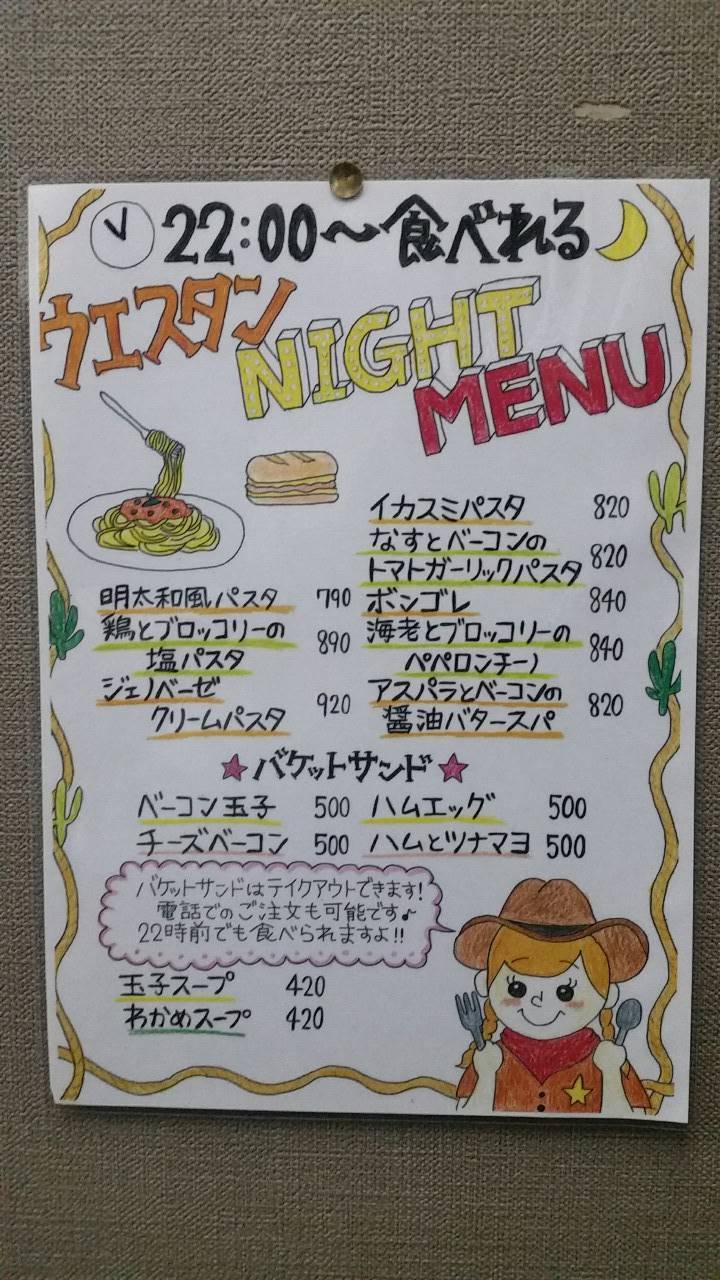 22:00〜食べれる
ウエスタン
NIGHT
MENU
明太和風パスタ 790
鶏とブロッコリーの
塩パスタ 890
ジェノベーゼ
クリームパスタ 920
イカスミパスタ 820
なすとベーコンの
トマトガーリックパスタ 820
ボンゴレ 840
海老とブロッコリーの
ペペロンチーノ 840
アスパラとベーコンの
醤油バタースパ 820
★バケットサンド★
ベーコン玉子 500 ハムエッグ 500
チーズベーコン 500 ハムとツナマヨ 500
バケットサンドはテイクアウトできます!
電話でのご注文も可能です♪
22時前でも食べられますよ!!
玉子スープ 420
わかめスープ 420